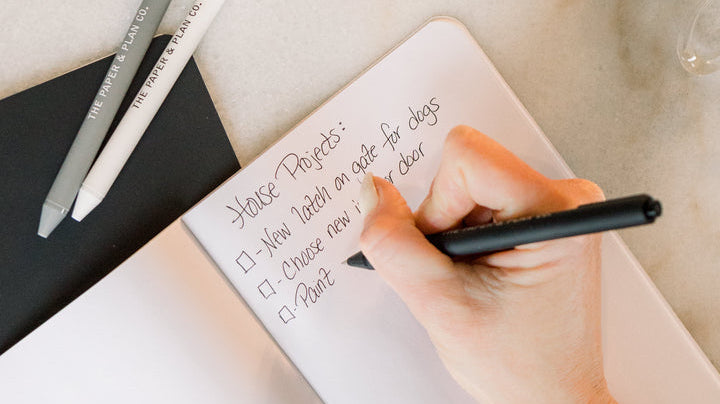 THE PAPER & PLAN CO.
THE PAPER & PLAN CO.
House Projects:
- New latch on gate for dogs
- Choose new door
- Paint